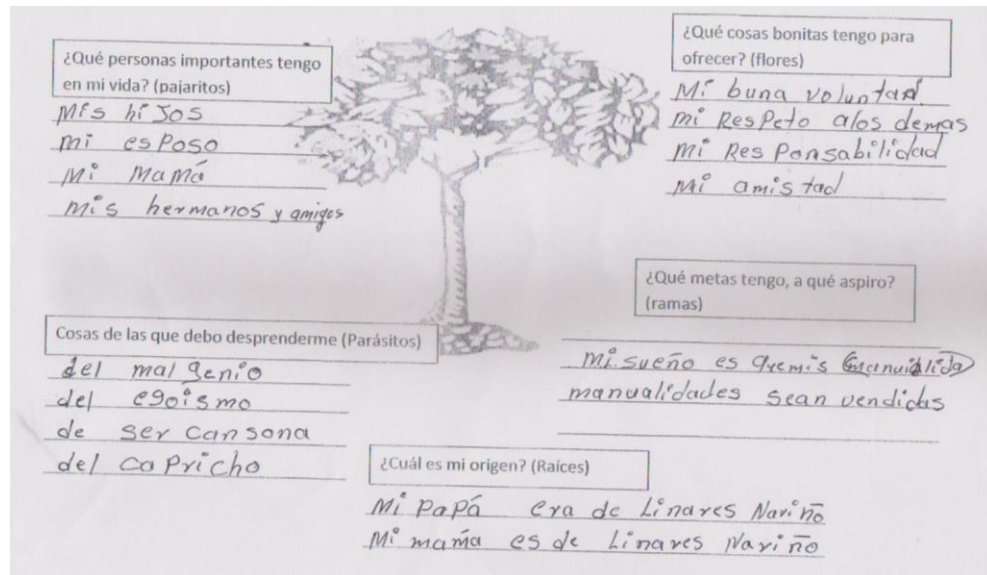 ¿Qué personas importantes tengo
en mi vida? (pajaritos)
Mis hiJos
mi esPoso
Mi Mamá
Mis hermanos y amigos
¿Qué cosas bonitas tengo para
ofrecer? (flores)
Mi buna voluntad
mi ResPeto alos demas
mi Res Ponsabilidad
Mi amistad
¿Qué metas tengo, a qué aspiro?
(ramas)
Mi sueño es quemis
manualidades sean vendidas
Cosas de las que debo desprenderme (Parásitos)
del mal genio
del egoismo
de ser cansona
del caPricho
¿Cuál es mi origen? (Raíces)
Mi PaPá era de Linares Nariño
Mi mamá es de Linares Nariño